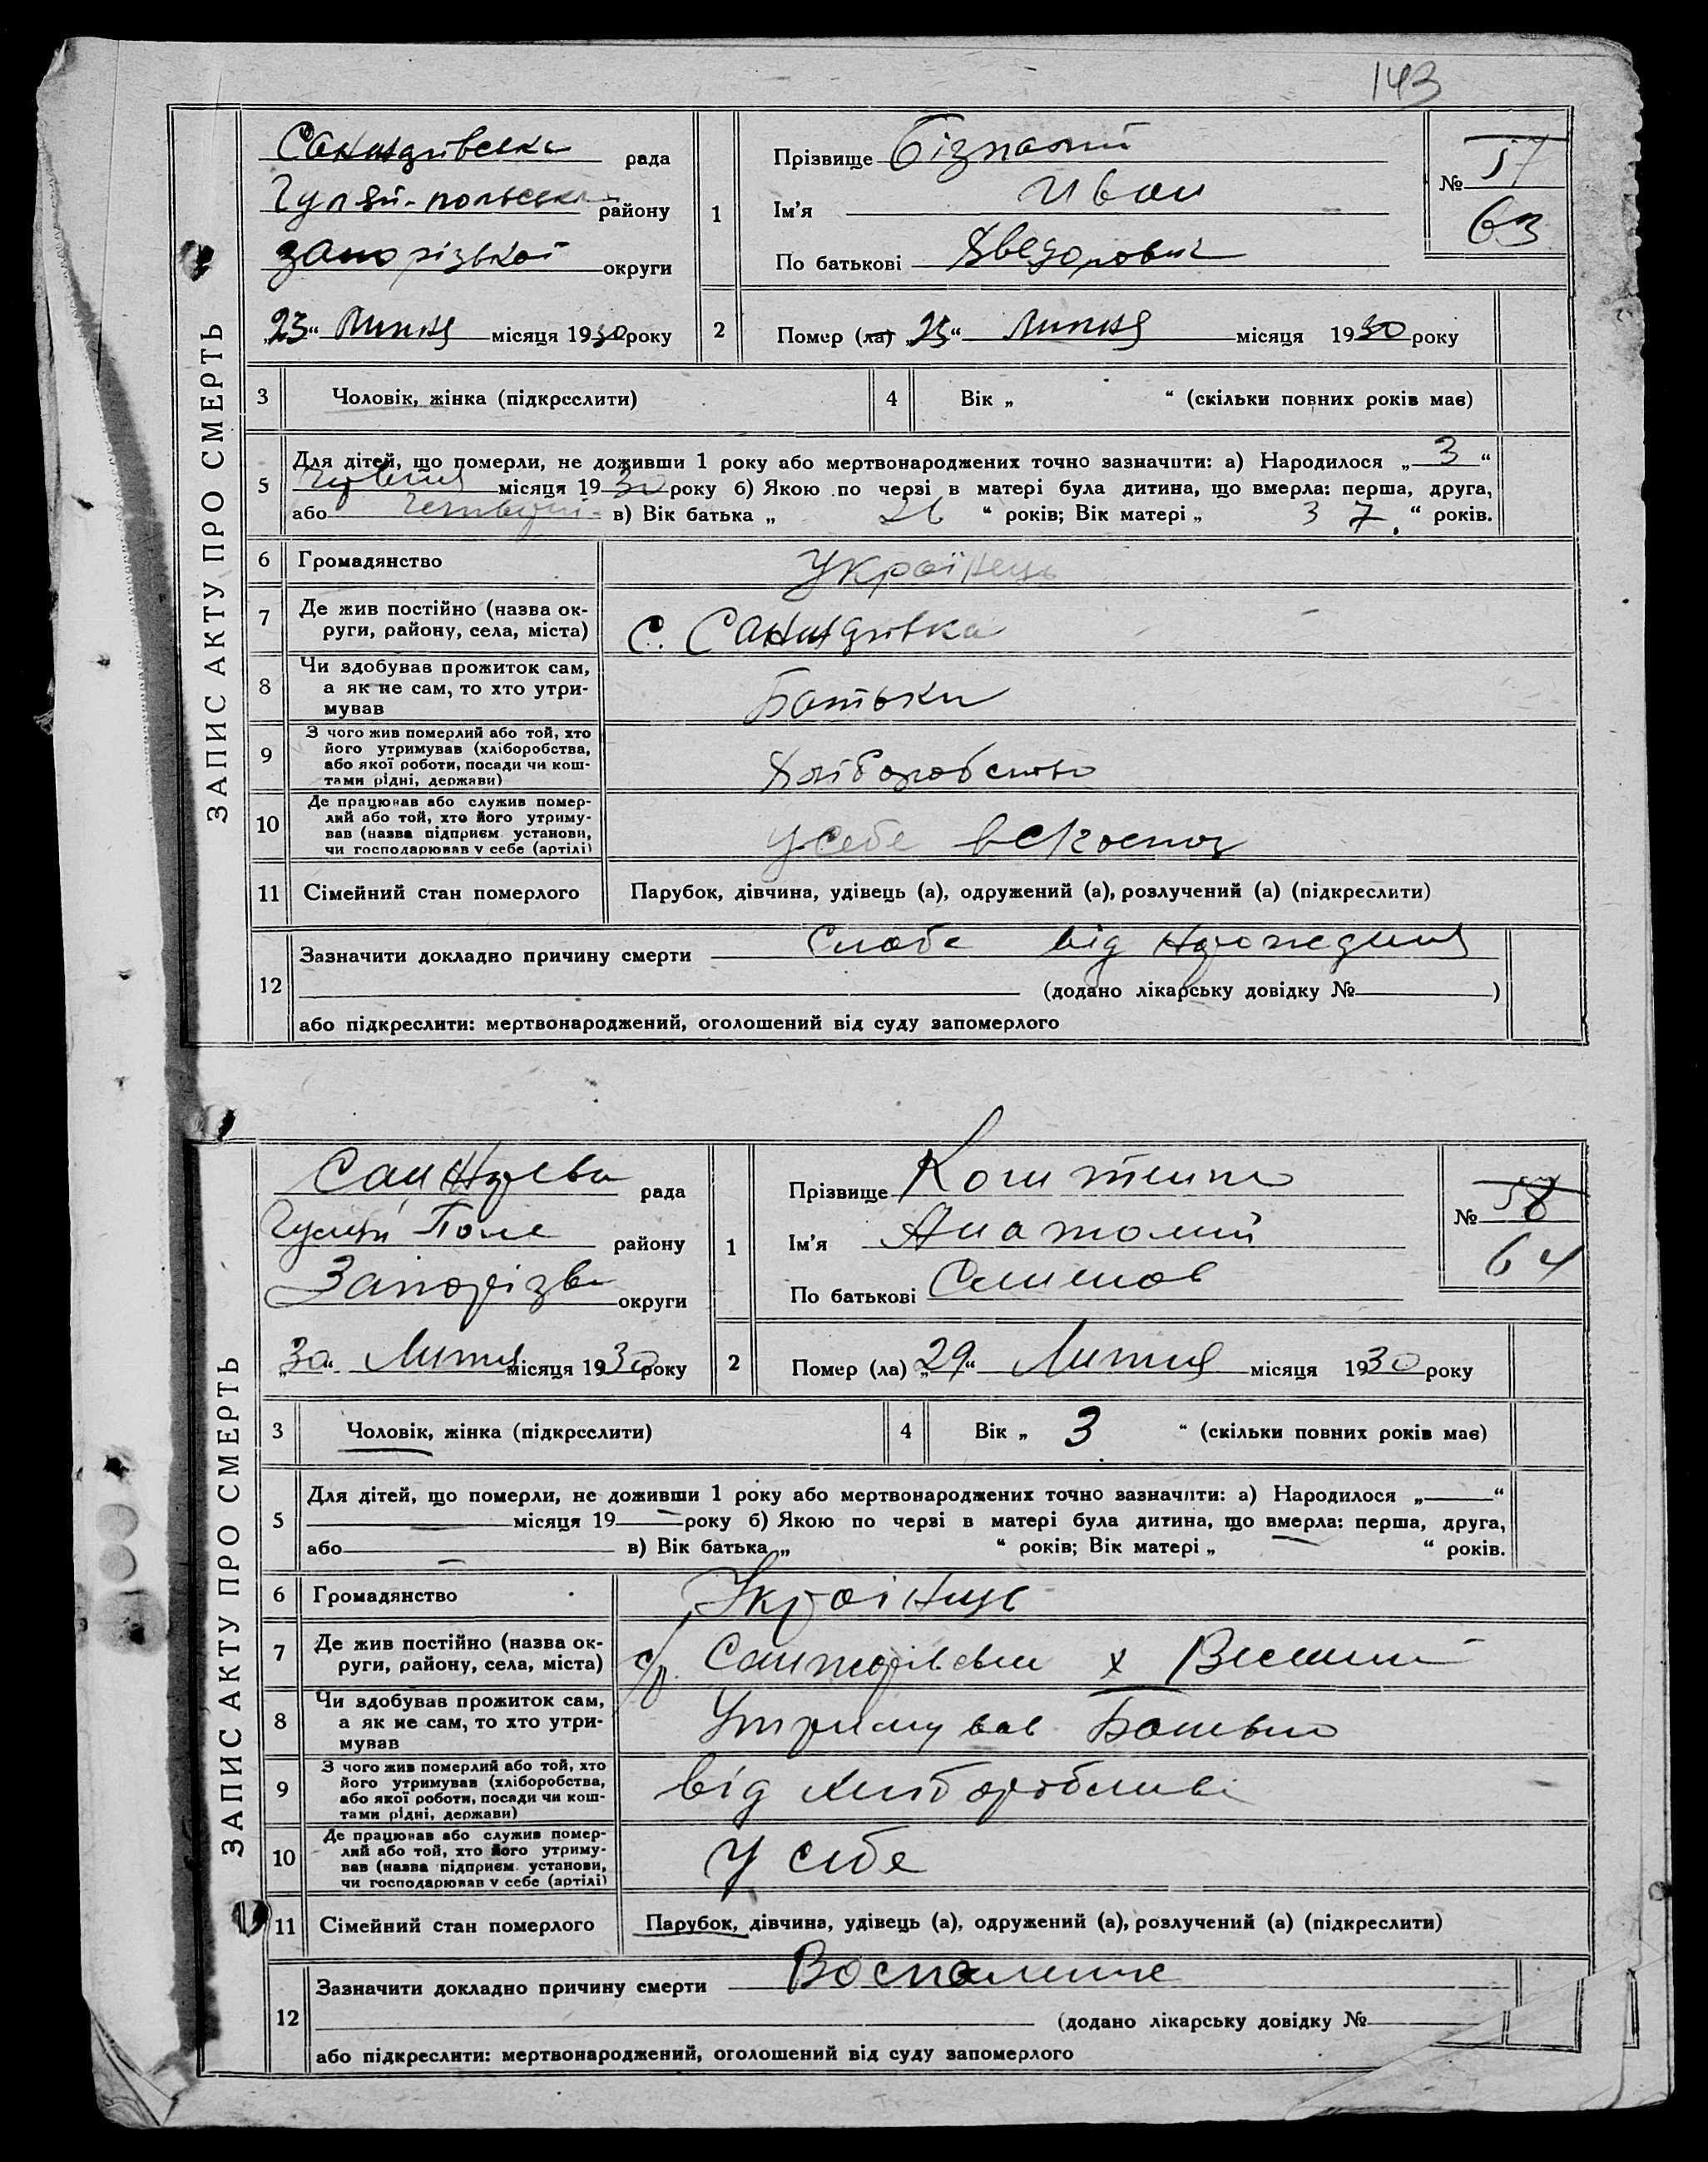 143
ЗАПИС АКТУ ПРО СМЕРТЬ
рада
Гуляй-польська району
запорізької округи
„23“ Липня місяця 1930 року
1
Прізвище
Ім'я Иван
По батькові Хведорович
№ 57
63
2 Помер (ла) „23“ Липня місяця 1930 року
3 Чоловік, жінка (підкреслити)
4 Вік „ “ (скільки повних років має)
5 Для дітей, що померли, не доживши 1 року або мертвонароджених точно зазначити: а) Народилося „3“
місяця 1930 року б) Якою по черзі в матері була дитина, що вмерла: перша, друга,
або в) Вік батька „ “ років; Вік матері „ 37 “ років.
6 Громадянство Українець
7 Де жив постійно (назва ок-
руги, району, села, міста) с.
8 Чи здобував прожиток сам,
а як не сам, то хто утри-
мував Батьки
9 З чого жив померлий або той, хто
його утримував (хліборобства,
або якої роботи, посади чи кош-
тами рідні, держави) Хліборобство
10 Де працював або служив помер-
лий або той, хто його утриму-
вав (назва підприєм. установи,
чи господарював у себе (артілі) у себе
11 Сімейний стан померлого Парубок, дівчина, удівець (а), одружений (а), розлучений (а) (підкреслити)
12 Зазначити докладно причину смерти від
(додано лікарську довідку № )
або підкреслити: мертвонароджений, оголошений від суду запомерлого
ЗАПИС АКТУ ПРО СМЕРТЬ
рада
Гуляй Поле району
округи
„30“ Липня місяця 1930 року
1
Прізвище
Ім'я Анатолий
По батькові
№ 58
64
2 Помер (ла) „29“ Липня місяця 1930 року
3 Чоловік, жінка (підкреслити)
4 Вік „ 3 “ (скільки повних років має)
5 Для дітей, що померли, не доживши 1 року або мертвонароджених точно зазначити: а) Народилося „ “
місяця 19 року б) Якою по черзі в матері була дитина, що вмерла: перша, друга,
або в) Вік батька „ “ років; Вік матері „ “ років.
6 Громадянство Українець
7 Де жив постійно (назва ок-
руги, району, села, міста) с/р. х
8 Чи здобував прожиток сам,
а як не сам, то хто утри-
мував Утримував Батько
9 З чого жив померлий або той, хто
його утримував (хліборобства,
або якої роботи, посади чи кош-
тами рідні, держави) від
10 Де працював або служив помер-
лий або той, хто його утриму-
вав (назва підприєм. установи,
чи господарював у себе (артілі) У себе
11 Сімейний стан померлого Парубок, дівчина, удівець (а), одружений (а), розлучений (а) (підкреслити)
12 Зазначити докладно причину смерти Воспаление
(додано лікарську довідку №
або підкреслити: мертвонароджений, оголошений від суду запомерлого